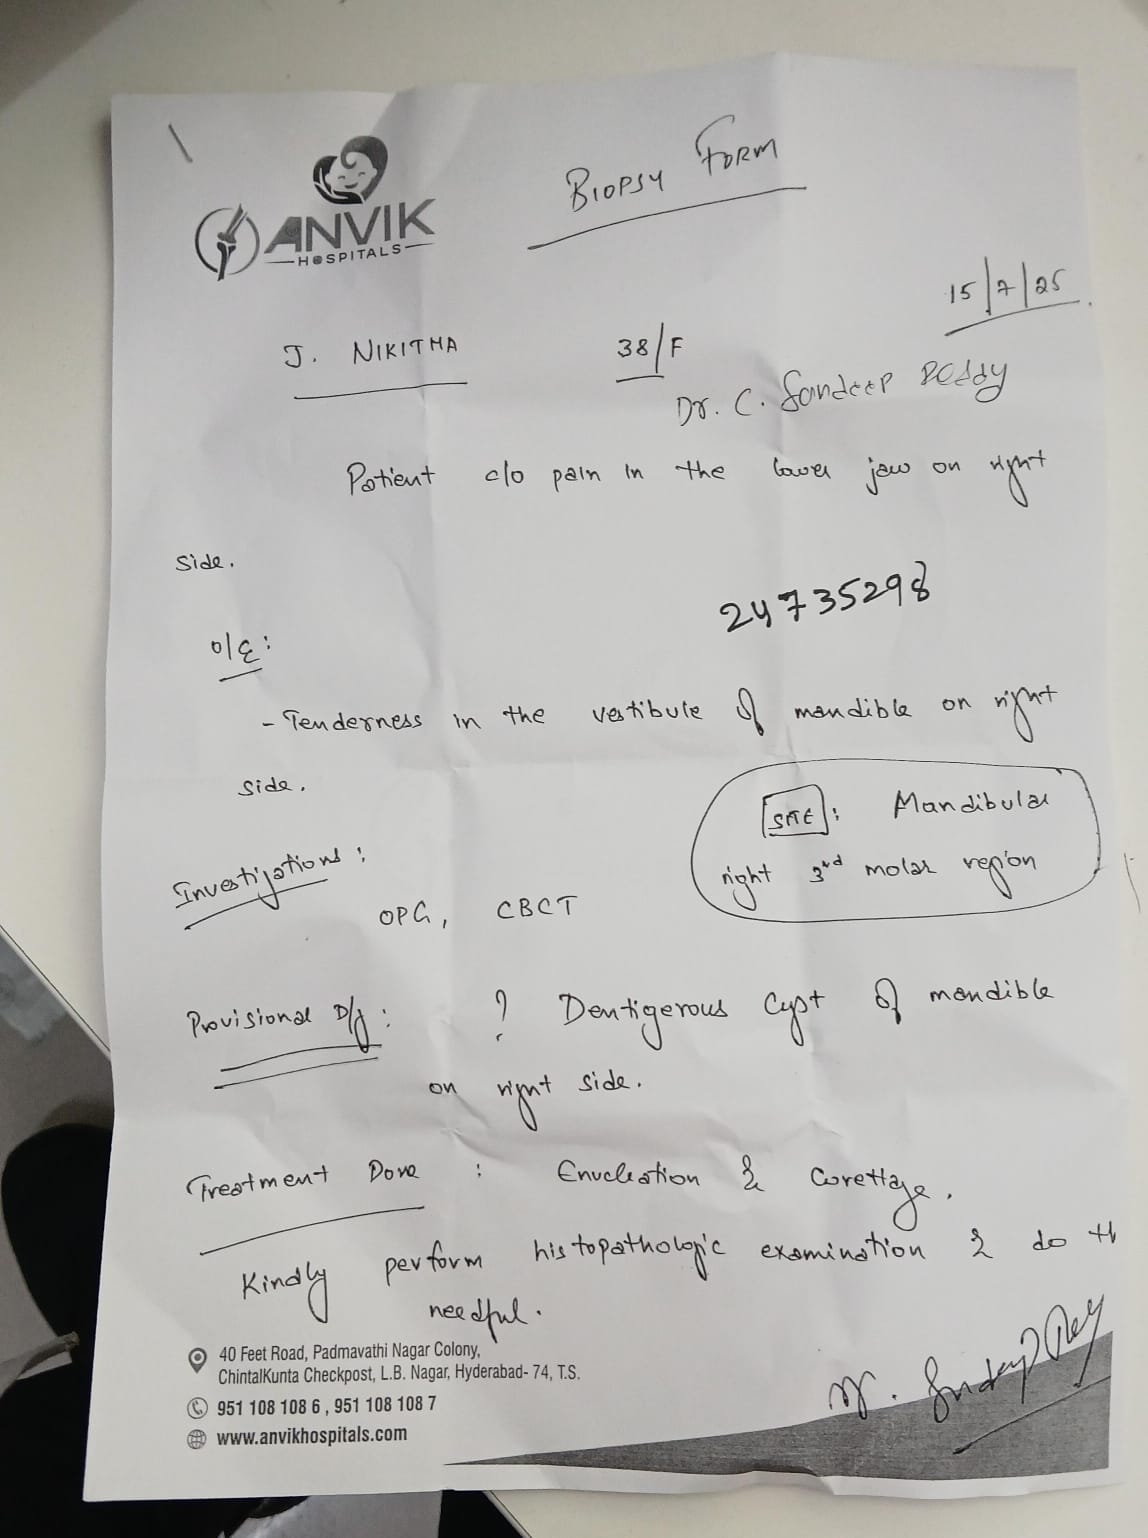 Biopsy Form
ANVIK
HOSPITALS
15/7/25
J. NIKITHA 38/F
Dr. C. Sandeep Reddy
Patient c/o pain in the lower jaw on right
side.
24735298
O/E:
- Tenderness in the vestibule of mandible on right
side.
SITE: Mandibular
right 3rd molar region
Investigations:
OPG, CBCT
Provisional D/g: ? Dentigerous Cyst of mandible
on right side.
Treatment Done : Enucleation & Curettage.
Kindly perform histopathologic examination & do th
needful.
40 Feet Road, Padmavathi Nagar Colony,
ChintalKunta Checkpost, L.B. Nagar, Hyderabad- 74, T.S.
951 108 108 6 , 951 108 108 7
www.anvikhospitals.com